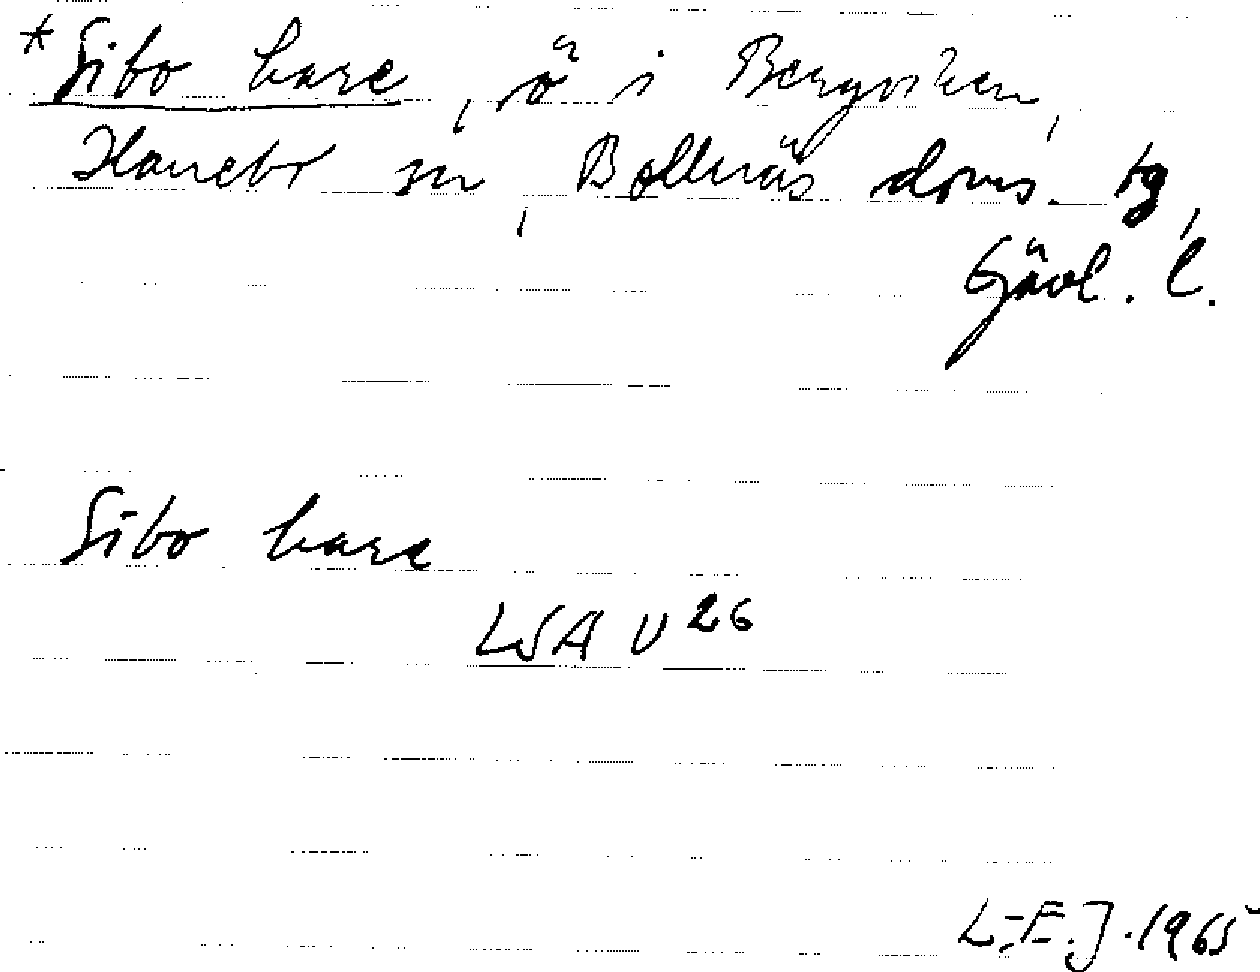 *Sibo hare, ö i Bergviken,
Hanebo sn, Bollnäs doms. tg,
Gävl. l.
Sibo hare
LSA U 26
L-E.J. 1965